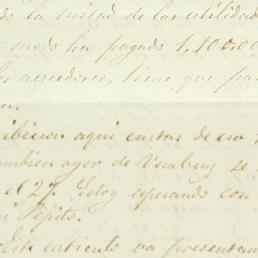 la mitad de las utilidad
modo ha pagado 1,100.00
acreedores, tiene que pa
cibieron aqui cartas de esa
tambien ayer de Veracruz se
el 27. Estoy esperando con
Pepito.
Este articulo va presentan